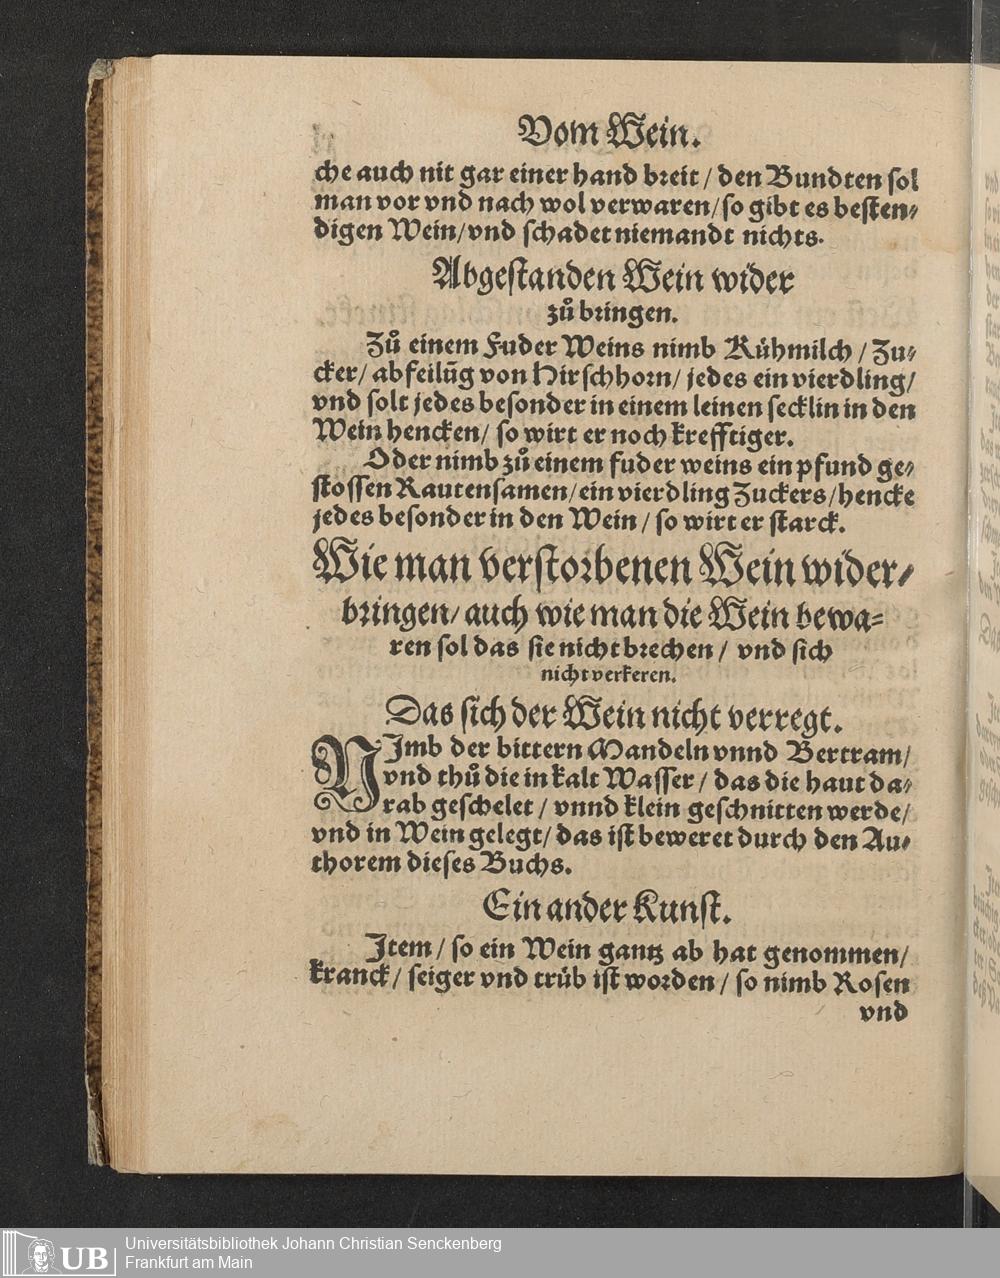 Vom Wein.
che auch nit gar einer hand breit / den Bundten sol
man vor vnd nach wol verwaren / so gibt es besten⸗
digen Wein / vnd schadet niemandt nichts.
Abgestanden Wein wider
zů bringen.
Zů einem Fuder Weins nimb Kůhmilch / Zu⸗
cker / abfeilūg von Hirschhorn / jedes ein vierdling /
vnd solt jedes besonder in einem leinen secklin in den
Wein hencken / so wirt er noch krefftiger.
Oder nimb zů einem fuder weins ein pfund ge⸗
stossen Rautensamen / ein vierdling Zuckers / hencke
jedes besonder in den Wein / so wirt er starck.
Wie man verstorbenen Wein wider⸗
bringen / auch wie man die Wein bewa⸗
ren sol das sie nicht brechen / vnd sich
nicht verkeren.
Das sich der Wein nicht verregt.
NImb der bittern Mandeln vnnd Bertram /
vnd thů die in kalt Wasser / das die haut da⸗
rab geschelet / vnnd klein geschnitten werde /
vnd in Wein gelegt / das ist beweret durch den Au⸗
thorem dieses Buchs.
Ein ander Kunst.
Item / so ein Wein gantz ab hat genommen /
kranck / seiger vnd trüb ist worden / so nimb Rosen
vnd
UB Universitätsbibliothek Johann Christian Senckenberg
Frankfurt am Main